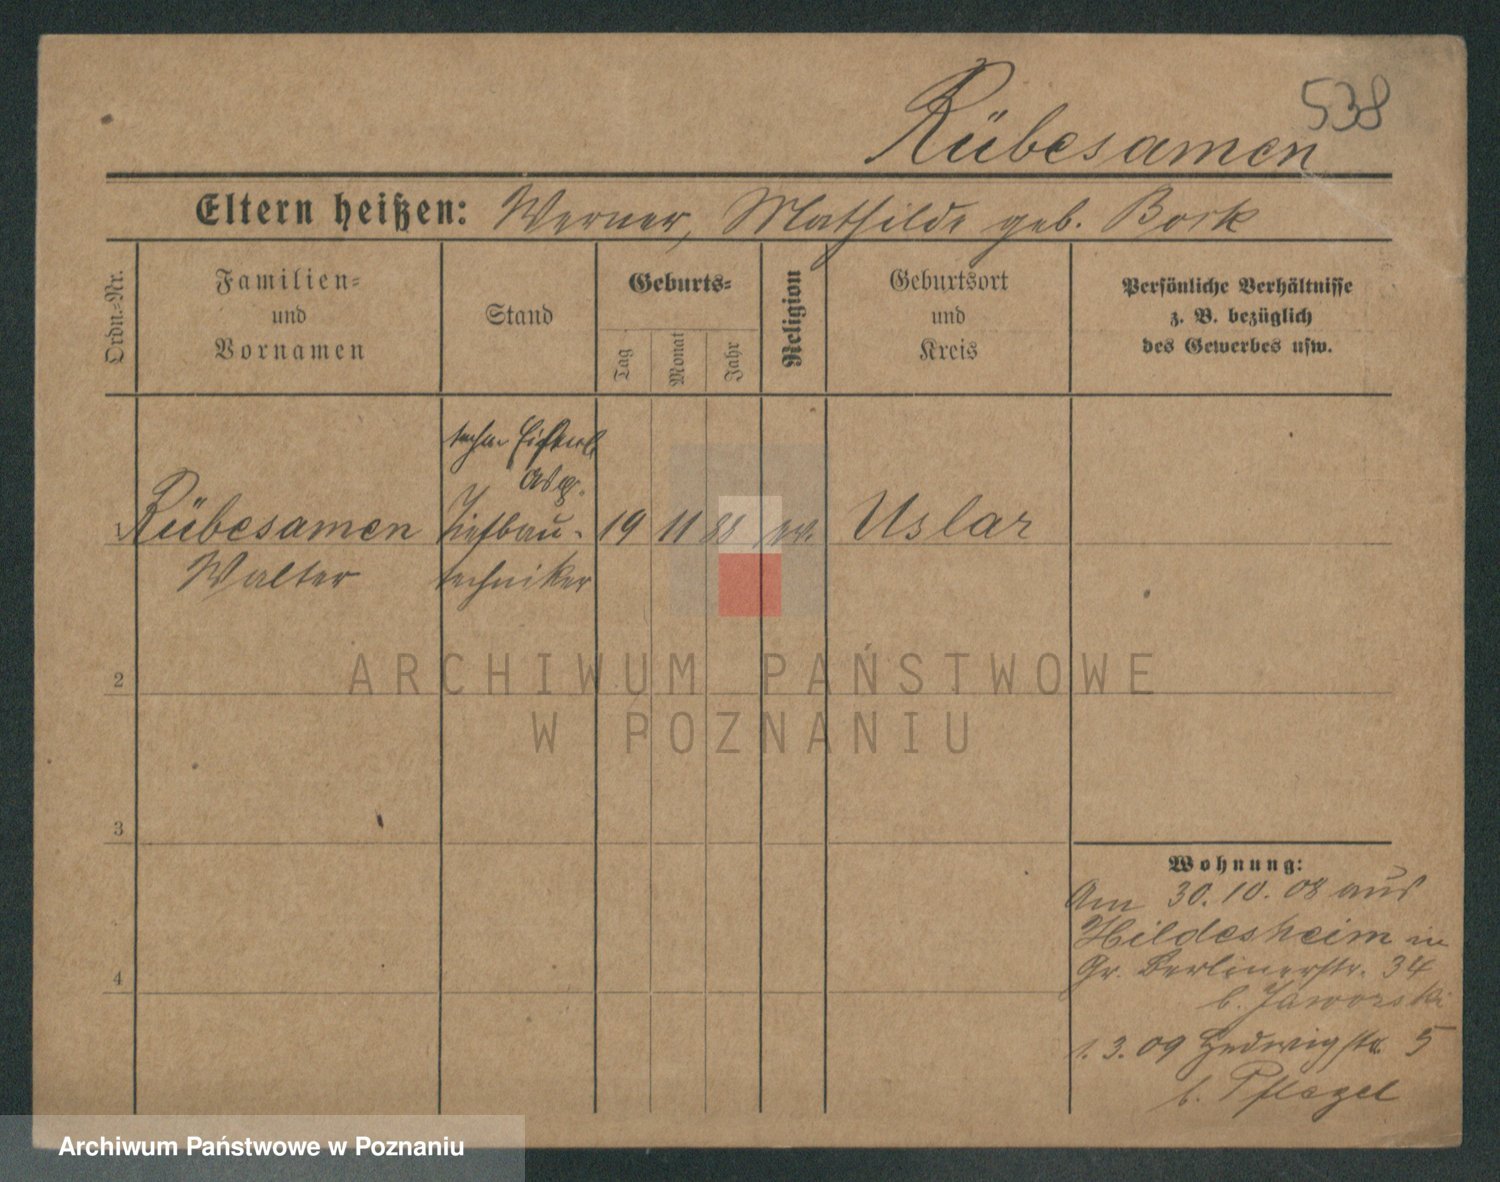 538
Rübesamen
Eltern heißen: Werner, Mathilde geb. Bork
Ordn.-Nr.
Familien-
und
Vornamen
Stand
Geburts-
Tag
Monat
Jahr
Religion
Geburtsort
und
Kreis
Persönliche Verhältnisse
z. B. bezüglich
des Gewerbes usw.
Rübesamen
Walter
Tiefbau-
techniker
19 11 88
Uslar
2
3
4
ARCHIWUM PAŃSTWOWE
W POZNANIU
Wohnung:
Am 30. 10. 08 aus
Hildesheim in
Gr. Berlinerstr. 34
b. Jaworski
1. 3. 09 Hedwigstr. 5
b. Pflagel
Archiwum Państwowe w Poznaniu